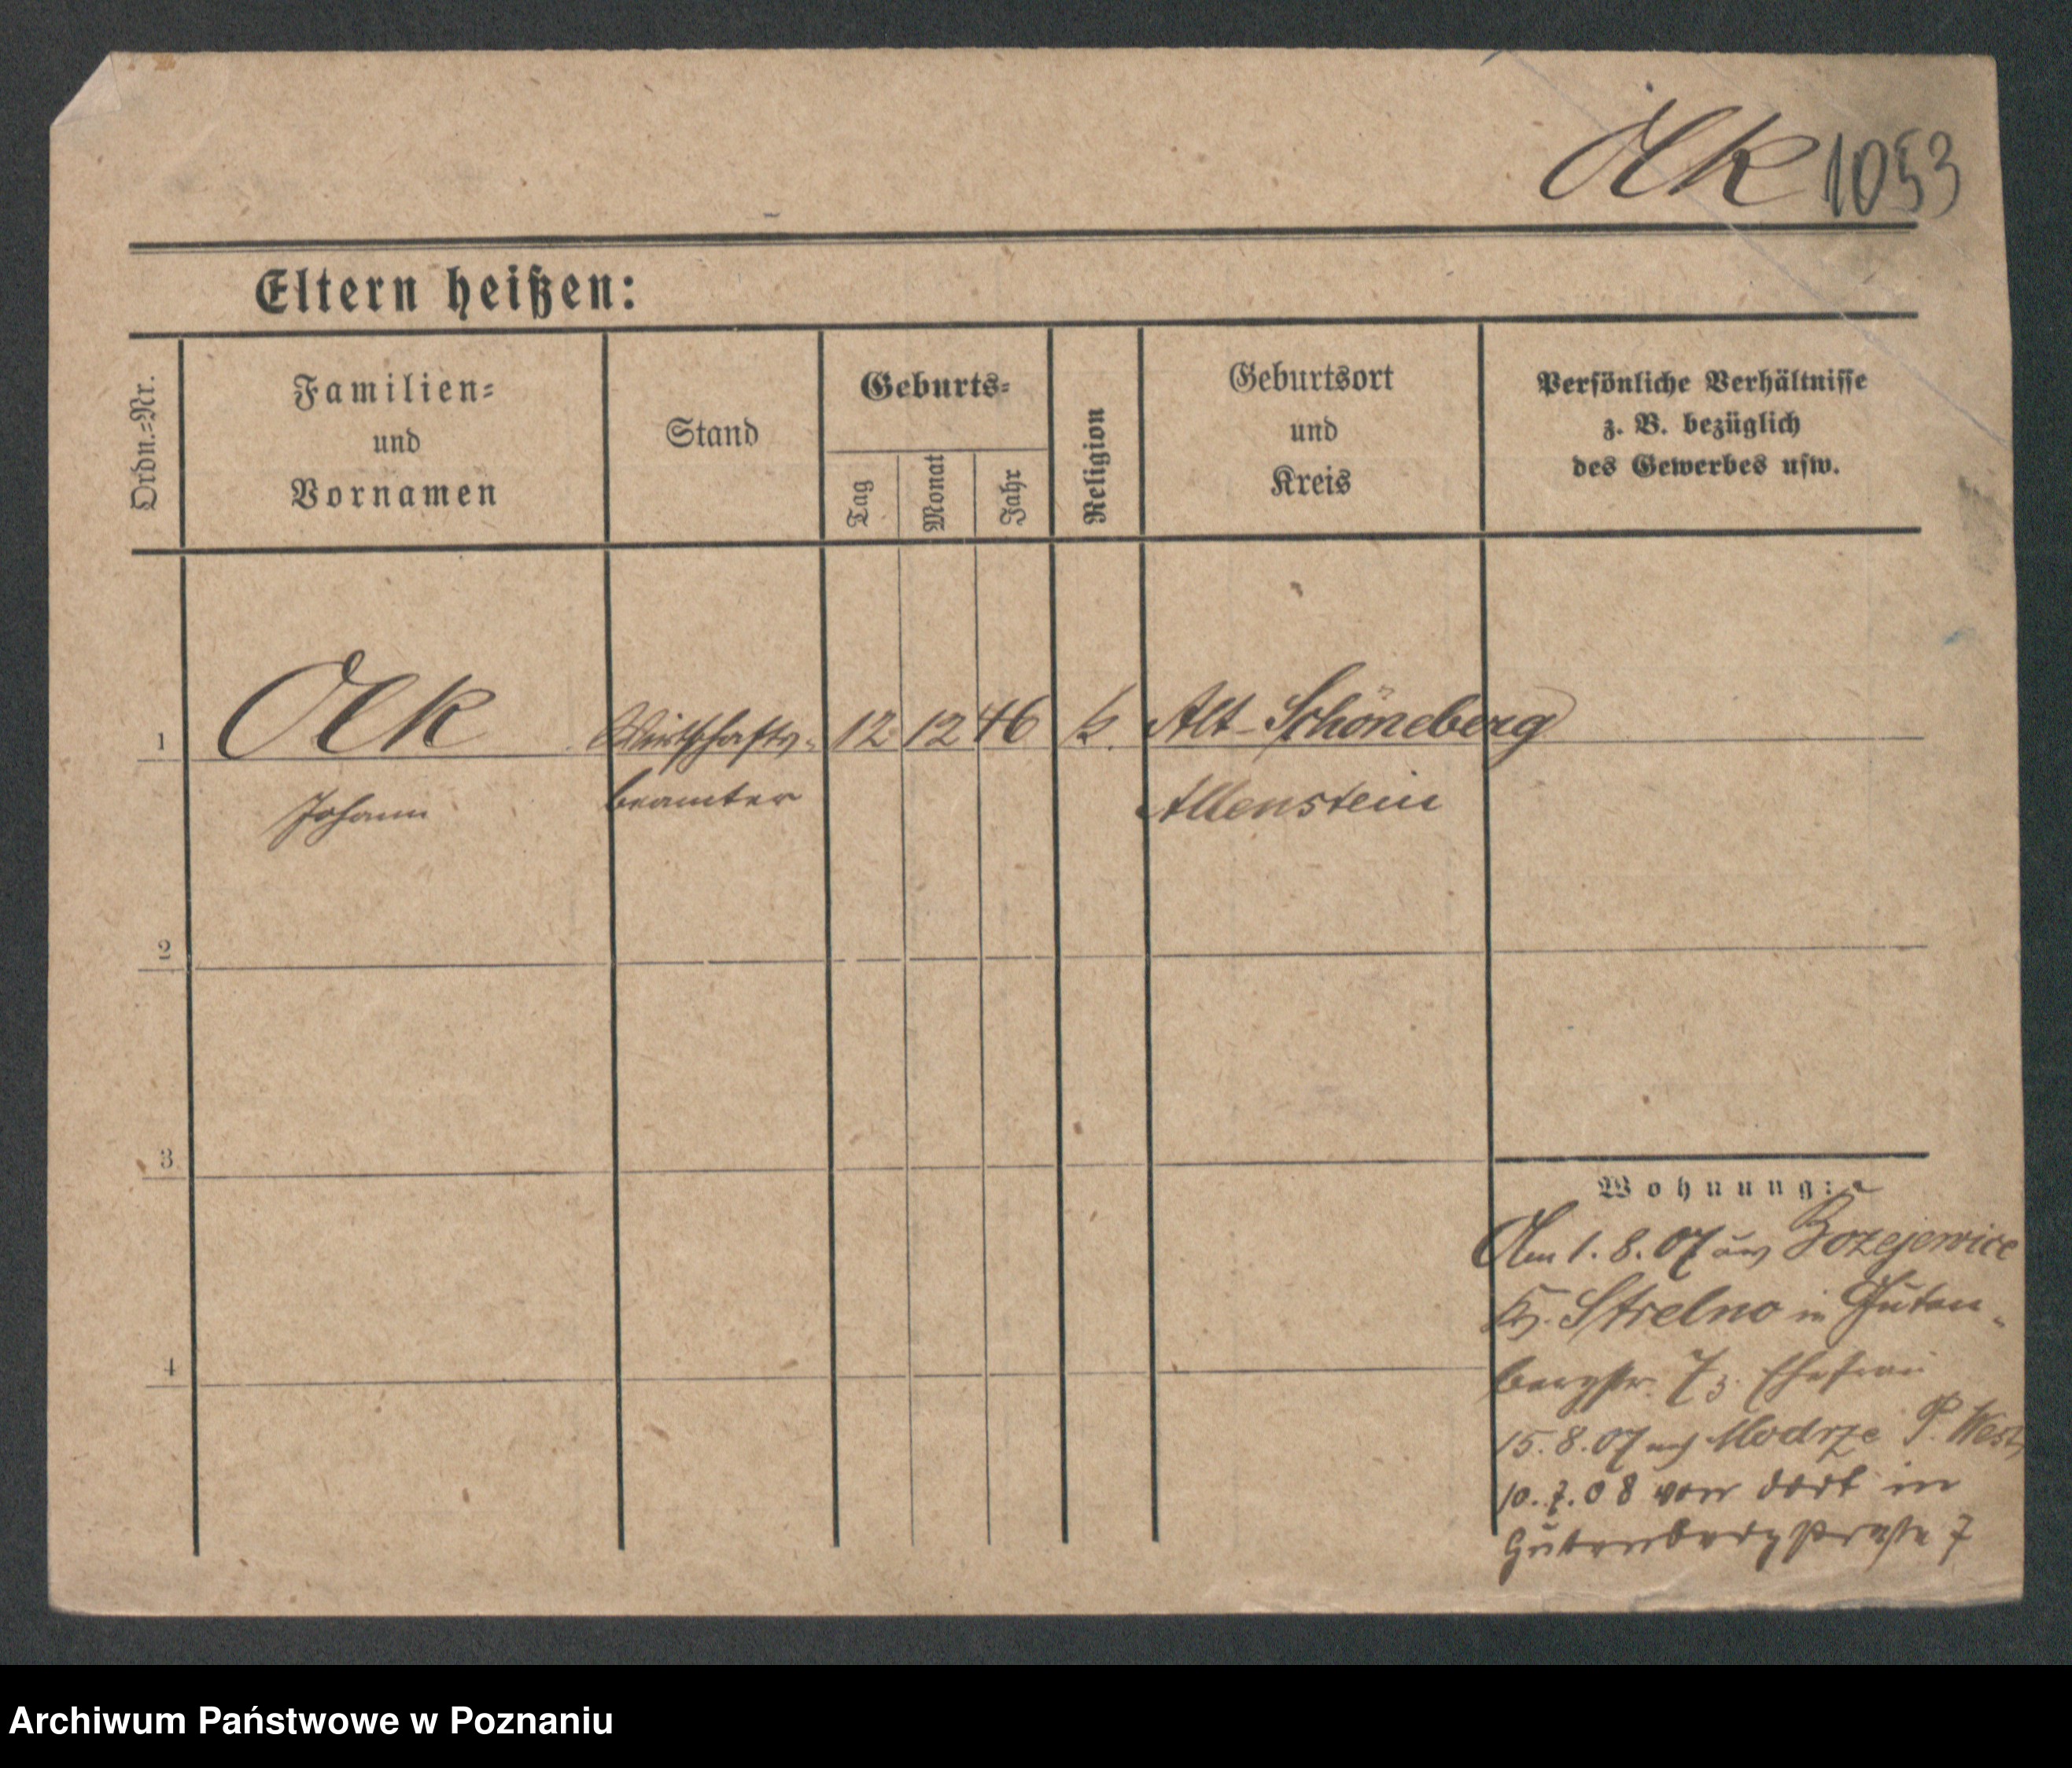 Olk 1053
Eltern heißen:
Ordn.=Nr.
Familien=
und
Vornamen
Stand
Geburts=
Tag
Monat
Jahr
Religion
Geburtsort
und
Kreis
Persönliche Verhältnisse
z. B. bezüglich
des Gewerbes usw.
1 Olk Wirtschafts= 12 12 46 k. Alt-Schöneberg
Johann beamter Allenstein
2
3
Wohnung:
Am 1. 8. 07 aus Bozejewice
Kr. Strelno in Guten-
4
bergstr. 7 z. Ehefrau
15. 8. 07 nach Modrze P. West
10. 7. 08 von dort in
Gutenbergstraße 7
Archiwum Państwowe w Poznaniu